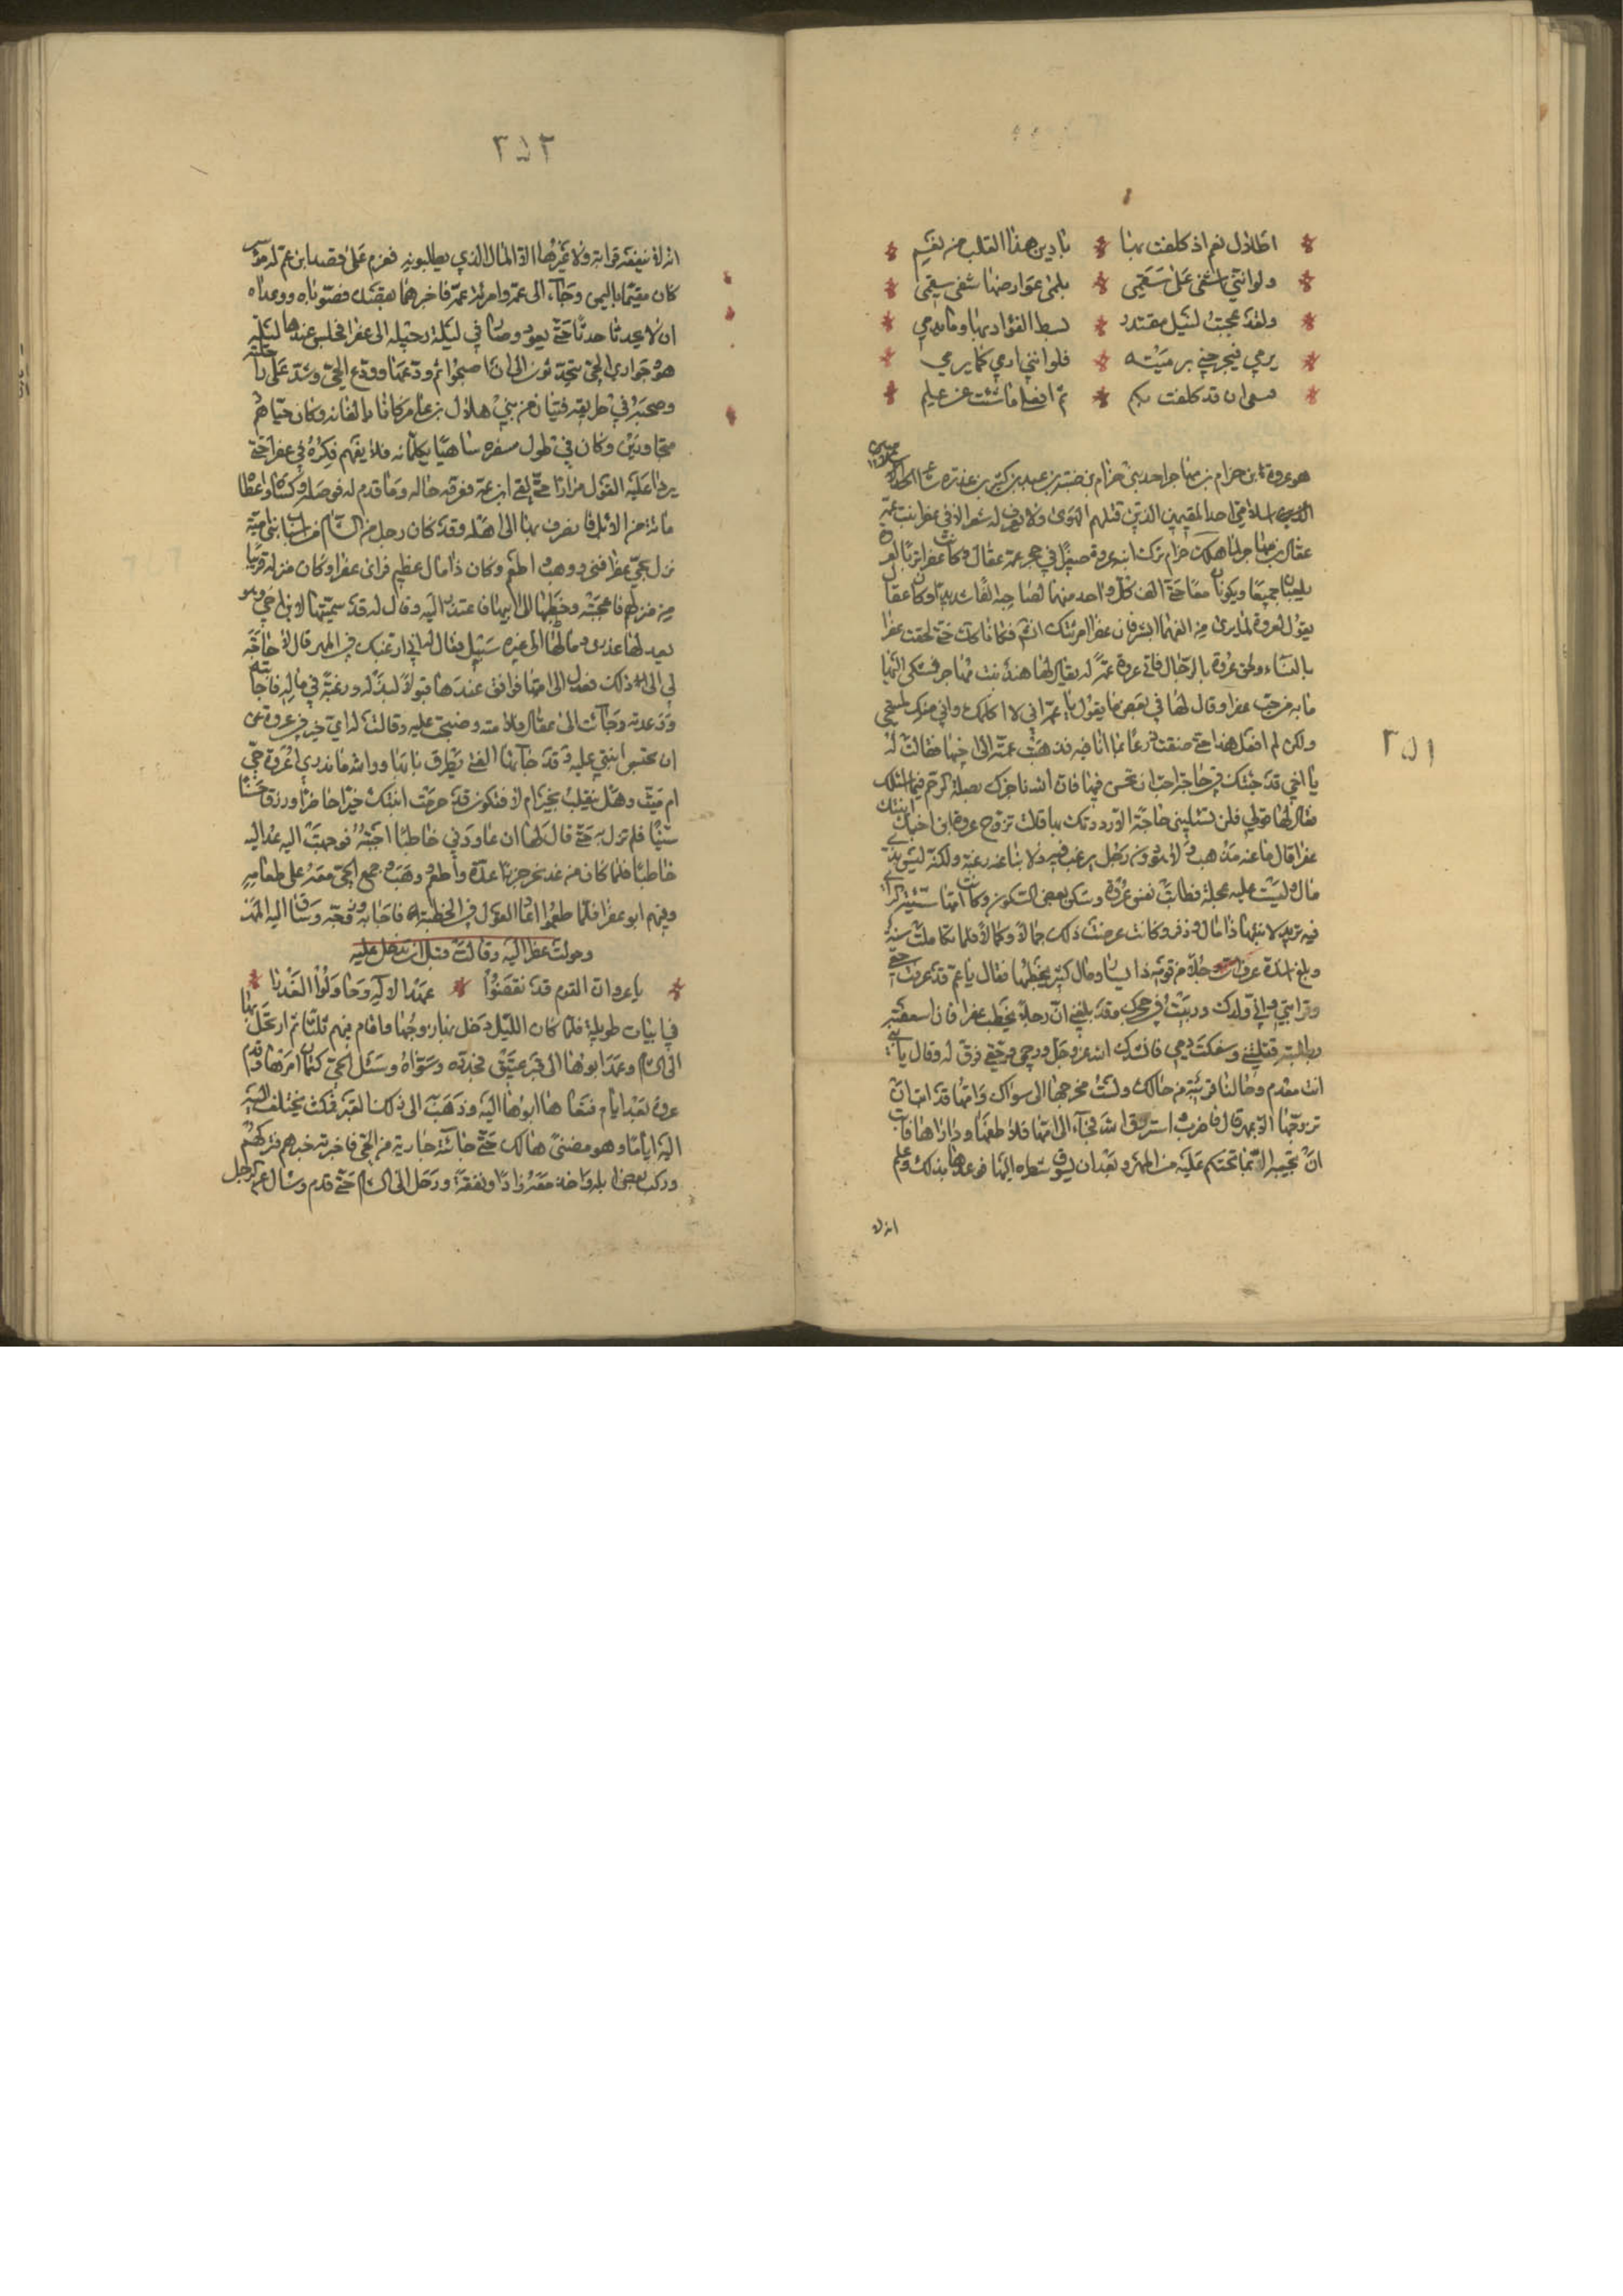 ٢٥١
اظلال نعم اذ كلفت بها * يا دين هذا القلب من نعم
ولو انني اشفى على سقمي * بلمى عوارضها شفى سقمي
ولقد عجبت لنبل مقتدر * بسط الفؤاد بها ولم يدمي
يرمي فيجرحني برميته * فلو انني ارمي كما يرمي
قد كلفت بكم * ثم افعلي ما شئت عن علم
هو عروة بن حزام بن مهاجر احد بني حزام بن ضبة بن عبد بن كبير بن عذرة شاعر
اسلامي احد المتيمين الذين قتلهم الهوى ولا يعرف له شعر الا في عفرا بنت عمه
عقال بن مهاجر لما هلك حزام ترك ابنه عروة صغيرا في حجر عمه عقال وكانت عفرا تربا لعروة
يلعبان جميعا ويكونان معا حتى الف كل واحد منهما لصاحبه الفا شديدا وكان عقال
يقول لعروة لما يرى من الفهما ابشر فان عفرا امرئتك انشا فكانا كذلك حتى لحقت عفرا
بالنساء ولحق عروة بالرجال فاتى عروة عمة له يقال لها هند بنت مهاجر فشكى اليها
ما به من حب عفرا وقال لها في بعض ما يقول يا عمة اني لا اكلمك واني منك لمستحي
ولكن لم افعل هذا حتى ضقت ذرعا بما انا فيه فذهبت عمته الى اخيها فقالت له
يا اخي قد جئتك في حاجة احب ان تحسن فيها فان الله ياجرك بصلة الرحم فيما اسئلك
فقال لها قولي فلن تسئليني حاجة الا رددتك بها قالت تزوج عروة ابن اخيك ابنتك
عفرا قال ما عنه مذهب ولا هو دون رجل يرغب فيه ولا بنا عنه رغبة ولكنه ليس بذي
مال وليست عليه عجلة فطابت نفس عروة وسكن بعض السكون وكانت امها سيئة الراي
فيه تريد لابنتها ذا مال ووفر وكانت عرضت ذلك جمالا وكمالا فلما تكاملت سنه
وبلغ اشده عرف ان رجلا من قومه ذا يسار ومال كثير يخطبها فقال يا عم قد عرفت حقي
وقرابتي واني ولدك وربيت في حجرك وقد بلغني ان رجلا يخطب عفرا فان اسعفته
بطلبته قتلتني وسفكت دمي فانشدك الله عز وجل ورحمي وحقي فرق له وقال يا بني
انت معدم وحالنا قريبة من حالك ولست مخرجها الى سواك وامها قد ابت ان
تزوجها الا بمهر قال فاضرب استرزق الله فجاء الى امها فلاطفها وداراها فابت
ان تجيبه الا بما تحتكم عليه من المهر وبعد ان يسوق شطره اليها فوعدها بذلك وعلم
انه لا
٢٥٢
انه لا ينفعه قرابة ولا غيرها الا المال الذي يطلبونه فعزم على قصد ابن عم له موسر
كان مقيما باليمن وجاء الى عمه وامرئة عمه فاخبرهما بقصده فصوباه ووعداه
ان لا يحدثا حدثا حتى يعود وصار في ليلة رحيله الى عفرا فجلس عندها ليلته
هو وجواري الحي يتحدثون الى ان اصبحوا ثم ودعها وودع الحي وشد على راحلته
وصحبه في طريقه فتيان من بني هلال بن عامر كانا يالفانه وكان حياهم
متجاورين وكان في طول سفره ساهيا يكلمانه فلا يفهم فكره في عفرا حتى
يردا عليه القول مرارا حتى لقي ابن عمه فعرفه حاله وما قدم له فوصله وكساه واعطاه
مائة من الابل فانصرف بها الى اهله وقد كان رجل من الشام من انساب بني امية
نزل بحي عفرا فنحر ووهب واطعم وكان ذا مال عظيم فراى عفرا وكان منزله قريبا
من منزلهم فاعجبته وخطبها الى ابيها فاعتذر اليه وقال له قد سميتها لابن اخي وهو
يعدلها عندي وما لها الى غيره سبيل فقال له اني ارغبك في المهر قال لا حاجة
لي الى ذلك فعدل الى امها فوافق عندها قبولا لبذله ورغبة في ماله فاجابته
ووعدته وجائت الى عقال فلامته وصخبت عليه وقالت له اي خير في عروة حتى
ان تحبس ابنتي عليه وقد جائها الغنى يطرق بابها ووالله ما ندري اعروة حي
ام ميت وهل ينقلب بخير ام لا فتكون قد حرمت ابنتك خيرا حاضرا ورزقا حسنا
سنيا فلم تزل به حتى قال لها ان عاودني خاطبا اجبته فوجهت اليه عد اليه
خاطبا فلما كان من غد نحر جزرا عدة واطعم ووهب وجمع الحي معه على طعامه
وفيهم ابو عفرا فلما طعموا اعاد القول في الخطبة فاجابه وزوجه وساق اليه المهر
وحولت عفرا اليه وقالت قبل ان يدخل عليه
* يا عرو ان القوم قد نقضوا * عهد الاله وحاولوا الغدرا *
في ابيات طويلة فلما كان الليل دخل بها زوجها واقام فيهم ثلثا ثم ارتحل بها
الى الشام وعمد ابوها الى قبر عتيق فجدده وسواه وسئل الحي كتمان امرها وقدم
عروة بعد ايام فنعاها ابوها اليه وذهب الى ذلك القبر فمكث يختلف اليه
اليه اياما وهو مضنى هالك حتى جائته جارية من الحي فاخبرته خبرهم فتركهم
وركب بعض ابله واخذ معه زادا ونفقة ورحل الى الشام حتى قدم وسال عن الرجل